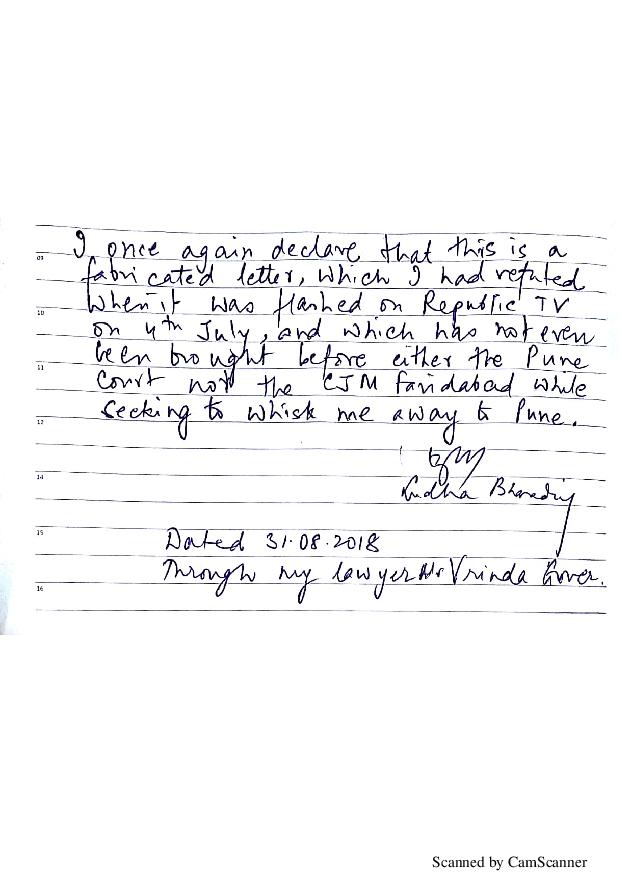 I once again declare that this is a
09
fabricated letter, which I had refuted
when it was flashed on Republic TV
10
on 4th July, and which has not even
been brought before either the Pune
11
Court nor the CJM Faridabad while
seeking to whisk me away to Pune.
12
14
Sudha Bharadwaj
15
Dated 31.08.2018
Through my lawyer Ms Vrinda Grover.
16
Scanned by CamScanner